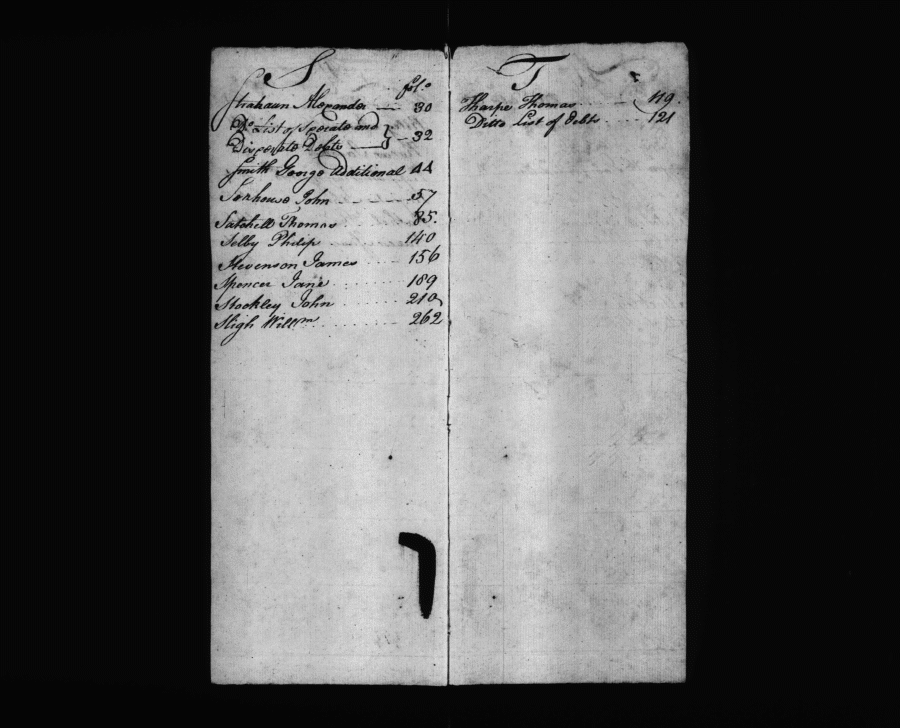 S
fol.o
Strahaun Alexander 30
Do List of Sperate and
Disperate Debts } 32
Smith George additional 44
John 57
Satchell Thomas 85.
Selby Philip 140
Stevenson James 156
Spencer Jane 189
Stockley John 210
Sligh Willm 262
T
Tharpe Thomas 119.
Ditto List of debts 121